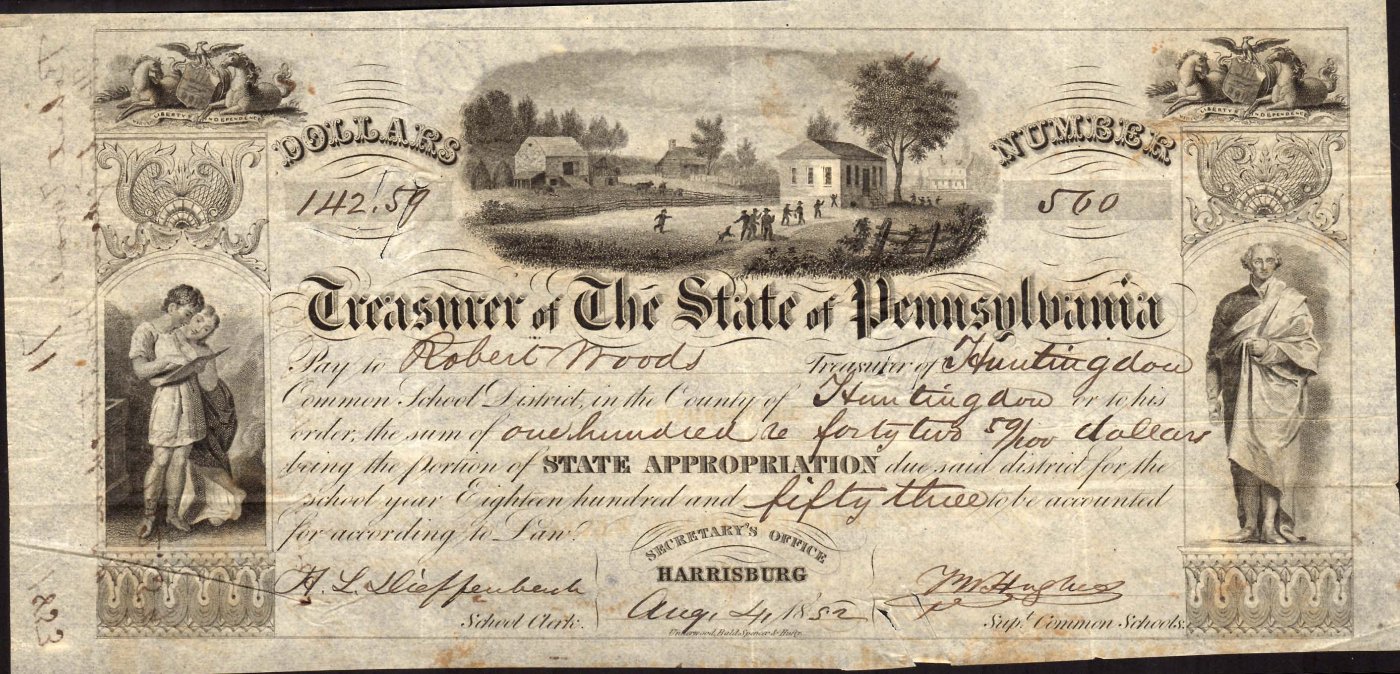 LIBERTY & INDEPENDENCE
LIBERTY & INDEPENDENCE
DOLLARS
NUMBER
142.59
500
Treasurer of The State of Pennsylvania
Pay to Robert Woods Treasurer of Huntingdon
Common School District, in the County of Huntingdon or to his
order, the sum of one hundred & forty two 59/100 dollars
being the portion of STATE APPROPRIATION due said district for the
school year Eighteen hundred and fifty three to be accounted
for according to Law.
SECRETARY'S OFFICE
HARRISBURG
H. L. Dieffenbach
Aug. 4, 1852
School Clerk.
Supt. Common Schools.
Underwood, Bald, Spencer & Hufty.
123